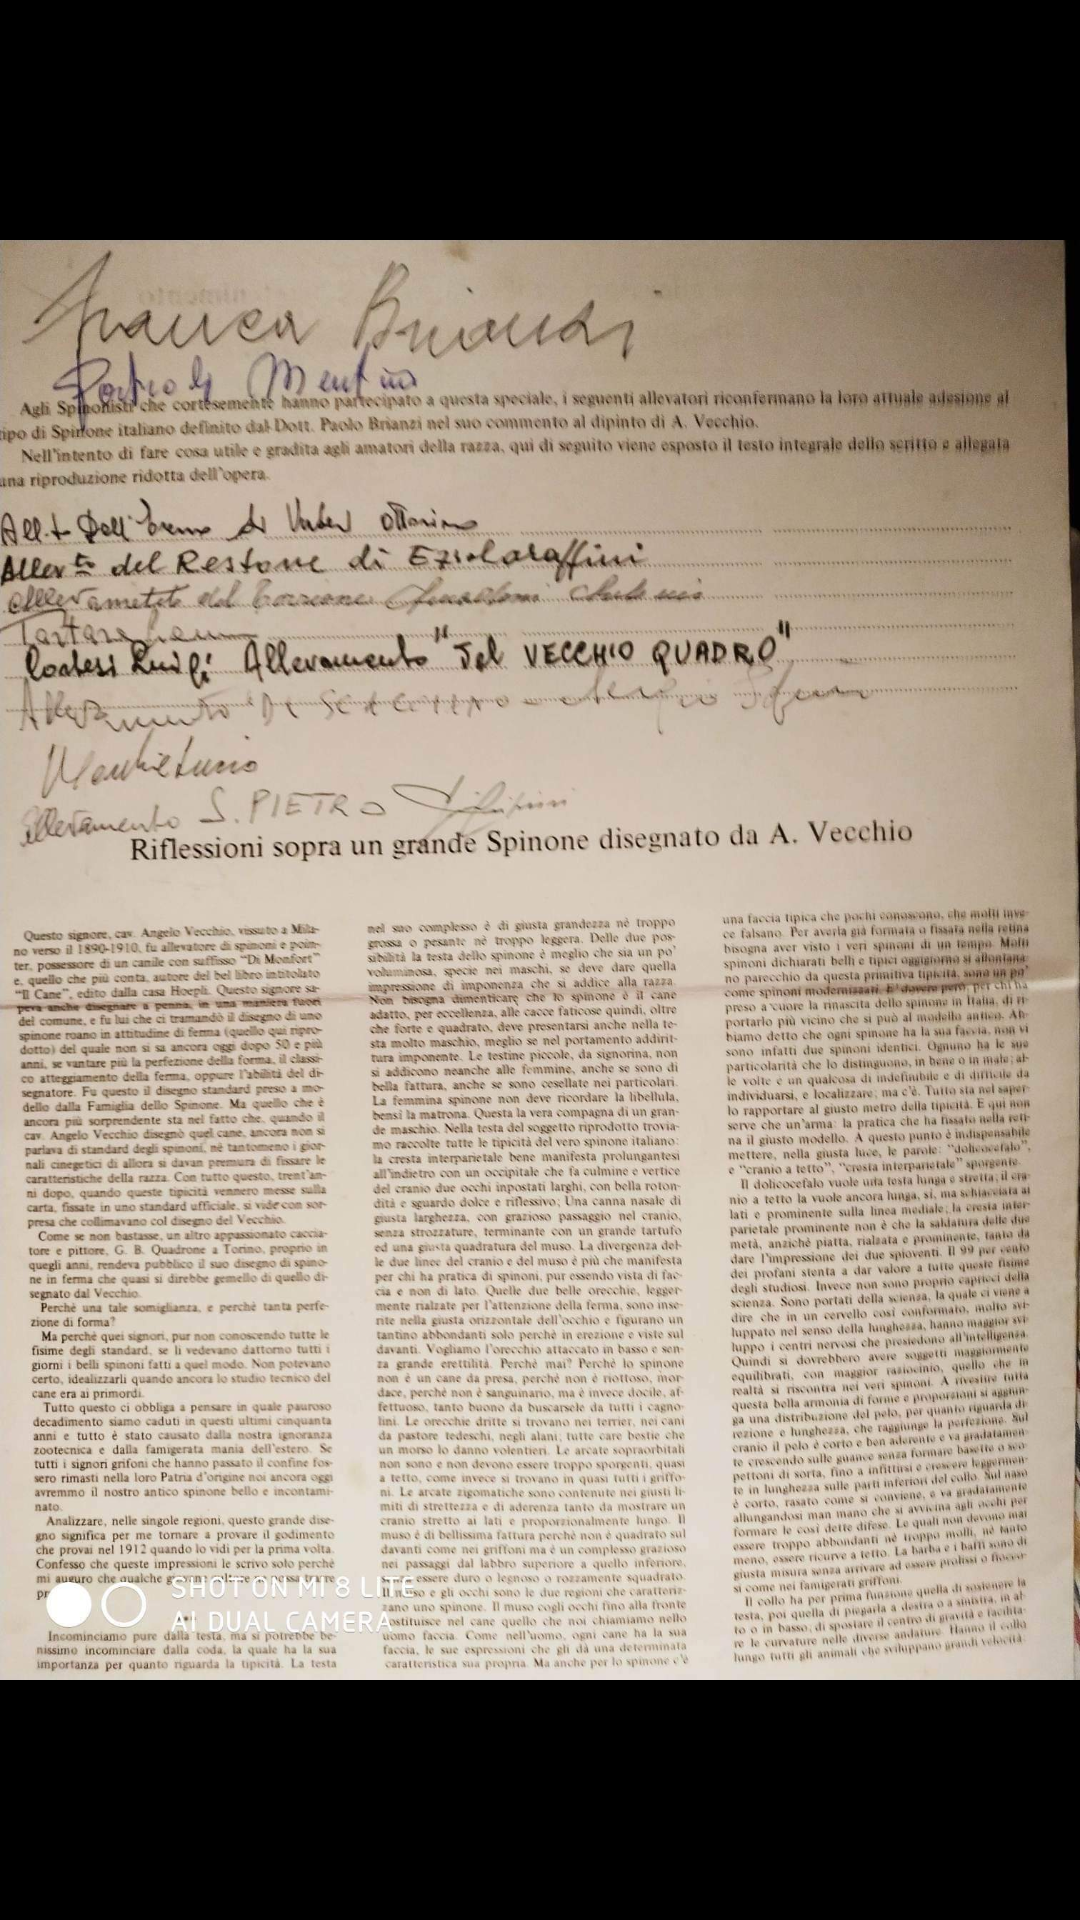 Franca Brianzi
Agli Spinonisti che cortesemente hanno partecipato a questa speciale, i seguenti allevatori riconfermano la loro attuale adesione al
tipo di Spinone italiano definito dal Dott. Paolo Brianzi nel suo commento al dipinto di A. Vecchio.
Nell'intento di fare cosa utile e gradita agli amatori della razza, qui di seguito viene esposto il testo integrale dello scritto e allegata
una riproduzione ridotta dell'opera.
All.to Dell' di Ottorino
Allev.to del Restone di Ezio
Allevamento del
Cortesi Luigi Allevamento "del VECCHIO QUADRO"
Allevamento
Allevamento S. PIETRO
Riflessioni sopra un grande Spinone disegnato da A. Vecchio
Questo signore, cav. Angelo Vecchio, vissuto a Mila-
no verso il 1890-1910, fu allevatore di spinoni e poin-
ter, possessore di un canile con suffisso "Di Monfort"
e, quello che più conta, autore del bel libro intitolato
"Il Cane", edito dalla casa Hoepli. Questo signore sa-
peva anche disegnare a penna, in una maniera fuori
del comune, e fu lui che ci tramandò il disegno di uno
spinone roano in attitudine di ferma (quello qui ripro-
dotto) del quale non si sa ancora oggi dopo 50 e più
anni, se vantare più la perfezione della forma, il classi-
co atteggiamento della ferma, oppure l'abilità del di-
segnatore. Fu questo il disegno standard preso a mo-
dello dalla Famiglia dello Spinone. Ma quello che è
ancora più sorprendente sta nel fatto che, quando il
cav. Angelo Vecchio disegnò quel cane, ancora non si
parlava di standard degli spinoni, nè tantomeno i gior-
nali cinegetici di allora si davan premura di fissare le
caratteristiche della razza. Con tutto questo, trent'an-
ni dopo, quando queste tipicità vennero messe sulla
carta, fissate in uno standard ufficiale, si vide con sor-
presa che collimavano col disegno del Vecchio.
Come se non bastasse, un altro appassionato caccia-
tore e pittore, G. B. Quadrone a Torino, proprio in
quegli anni, rendeva pubblico il suo disegno di spino-
ne in ferma che quasi si direbbe gemello di quello di-
segnato dal Vecchio.
Perchè una tale somiglianza, e perchè tanta perfe-
zione di forma?
Ma perchè quei signori, pur non conoscendo tutte le
fisime degli standard, se li vedevano dattorno tutti i
giorni i belli spinoni fatti a quel modo. Non potevano
certo, idealizzarli quando ancora lo studio tecnico del
cane era ai primordi.
Tutto questo ci obbliga a pensare in quale pauroso
decadimento siamo caduti in questi ultimi cinquanta
anni e tutto è stato causato dalla nostra ignoranza
zootecnica e dalla famigerata mania dell'estero. Se
tutti i signori grifoni che hanno passato il confine fos-
sero rimasti nella loro Patria d'origine noi ancora oggi
avremmo il nostro antico spinone bello e incontami-
nato.
Analizzare, nelle singole regioni, questo grande dise-
gno significa per me tornare a provare il godimento
che provai nel 1912 quando lo vidi per la prima volta.
Confesso che queste impressioni le scrivo solo perchè
mi auguro che qualche
Incominciamo pure dalla testa, ma si potrebbe be-
nissimo incominciare dalla coda, la quale ha la sua
importanza per quanto riguarda la tipicità. La testa
nel suo complesso è di giusta grandezza nè troppo
grossa o pesante nè troppo leggera. Delle due pos-
sibilità la testa dello spinone è meglio che sia un po'
voluminosa, specie nei maschi, se deve dare quella
impressione di imponenza che si addice alla razza.
Non bisogna dimenticare che lo spinone è il cane
adatto, per eccellenza, alle cacce faticose quindi, oltre
che forte e quadrato, deve presentarsi anche nella te-
sta molto maschio, meglio se nel portamento addirit-
tura imponente. Le testine piccole, da signorina, non
si addicono neanche alle femmine, anche se sono di
bella fattura, anche se sono cesellate nei particolari.
La femmina spinone non deve ricordare la libellula,
bensì la matrona. Questa la vera compagna di un gran-
de maschio. Nella testa del soggetto riprodotto trovia-
mo raccolte tutte le tipicità del vero spinone italiano:
la cresta interparietale bene manifesta prolungantesi
all'indietro con un occipitale che fa culmine e vertice
del cranio due occhi inpostati larghi, con bella roton-
dità e sguardo dolce e riflessivo; Una canna nasale di
giusta larghezza, con grazioso passaggio nel cranio,
senza strozzature, terminante con un grande tartufo
ed una giusta quadratura del muso. La divergenza del-
le due linee del cranio e del muso è più che manifesta
per chi ha pratica di spinoni, pur essendo vista di fac-
cia e non di lato. Quelle due belle orecchie, legger-
mente rialzate per l'attenzione della ferma, sono inse-
rite nella giusta orizzontale dell'occhio e figurano un
tantino abbondanti solo perchè in erezione e viste sul
davanti. Vogliamo l'orecchio attaccato in basso e sen-
za grande erettilità. Perchè mai? Perchè lo spinone
non è un cane da presa, perchè non è riottoso, mor-
dace, perchè non è sanguinario, ma è invece docile, af-
fettuoso, tanto buono da buscarsele da tutti i cagno-
lini. Le orecchie dritte si trovano nei terrier, nei cani
da pastore tedeschi, negli alani; tutte care bestie che
un morso lo danno volentieri. Le arcate sopraorbitali
non sono e non devono essere troppo sporgenti, quasi
a tetto, come invece si trovano in quasi tutti i griffo-
ni. Le arcate zigomatiche sono contenute nei giusti li-
miti di strettezza e di aderenza tanto da mostrare un
cranio stretto ai lati e proporzionalmente lungo. Il
muso è di bellissima fattura perchè non è quadrato sul
davanti come nei griffoni ma è un complesso grazioso
nei passaggi dal labbro superiore a quello inferiore,
essere duro o legnoso o rozzamente squadrato.
Il muso e gli occhi sono le due regioni che caratteriz-
zano uno spinone. Il muso cogli occhi fino alla fronte
costituisce nel cane quello che noi chiamiamo nello
uomo faccia. Come nell'uomo, ogni cane ha la sua
faccia, le sue espressioni che gli dà una determinata
caratteristica sua propria. Ma anche per lo spinone c'è
una faccia tipica che pochi conoscono, che molti inve-
ce falsano. Per averla già formata o fissata nella retina
bisogna aver visto i veri spinoni di un tempo. Molti
spinoni dichiarati belli e tipici oggigiorno si allontana-
no parecchio da questa primitiva tipicità, sono un po'
come spinoni modernizzati. E' dovere però, per chi ha
preso a cuore la rinascita dello spinone in Italia, di ri-
portarlo più vicino che si può al modello antico. Ab-
biamo detto che ogni spinone ha la sua faccia, non vi
sono infatti due spinoni identici. Ognuno ha le sue
particolarità che lo distinguono, in bene o in male; al-
le volte è un qualcosa di indefinibile e di difficile da
individuarsi, e localizzare; ma c'è. Tutto sta nel saper-
lo rapportare al giusto metro della tipicità. E qui non
serve che un'arma: la pratica che ha fissato nella reti-
na il giusto modello. A questo punto è indispensabile
mettere, nella giusta luce, le parole: "dolicocefalo",
e "cranio a tetto", "cresta interparietale" sporgente.
Il dolicocefalo vuole una testa lunga e stretta; il cra-
nio a tetto la vuole ancora lunga, sì, ma schiacciata ai
lati e prominente sulla linea mediale; la cresta inter-
parietale prominente non è che la saldatura delle due
metà, anzichè piatta, rialzata e prominente, tanto da
dare l'impressione dei due spioventi. Il 99 per cento
dei profani stenta a dar valore a tutte queste fisime
degli studiosi. Invece non sono proprio capricci della
scienza. Sono portati della scienza, la quale ci viene a
dire che in un cervello così conformato, molto svi-
luppato nel senso della lunghezza, hanno maggior svi-
luppo i centri nervosi che presiedono all'intelligenza.
Quindi si dovrebbero avere soggetti maggiormente
equilibrati, con maggior raziocinio, quello che in
realtà si riscontra nei veri spinoni. A rivestire tutta
questa bella armonia di forme e proporzioni si aggiun-
ga una distribuzione del pelo, per quanto riguarda di-
rezione e lunghezza, che raggiunge la perfezione. Sul
cranio il pelo è corto e ben aderente e va gradatamen-
te crescendo sulle guance senza formare basette o sco-
pettoni di sorta, fino a infittirsi e crescere leggermen-
te in lunghezza sulle parti inferiori del collo. Sul naso
è corto, rasato come si conviene, e va gradatamente
allungandosi man mano che si avvicina agli occhi per
formare le così dette difese. Le quali non devono mai
essere troppo abbondanti nè troppo molli, nè tanto
meno, essere ricurve a tetto. La barba e i baffi sono di
giusta misura senza arrivare ad essere prolissi o fiocco-
si come nei famigerati griffoni.
Il collo ha per prima funzione quella di sostenere la
testa, poi quella di piegarla a destra o a sinistra, in al-
to o in basso, di spostare il centro di gravità e facilita-
re le curvature nelle diverse andature. Hanno il collo
lungo tutti gli animali che sviluppano grandi velocità.
SHOT ON MI 8 LITE
AI DUAL CAMERA